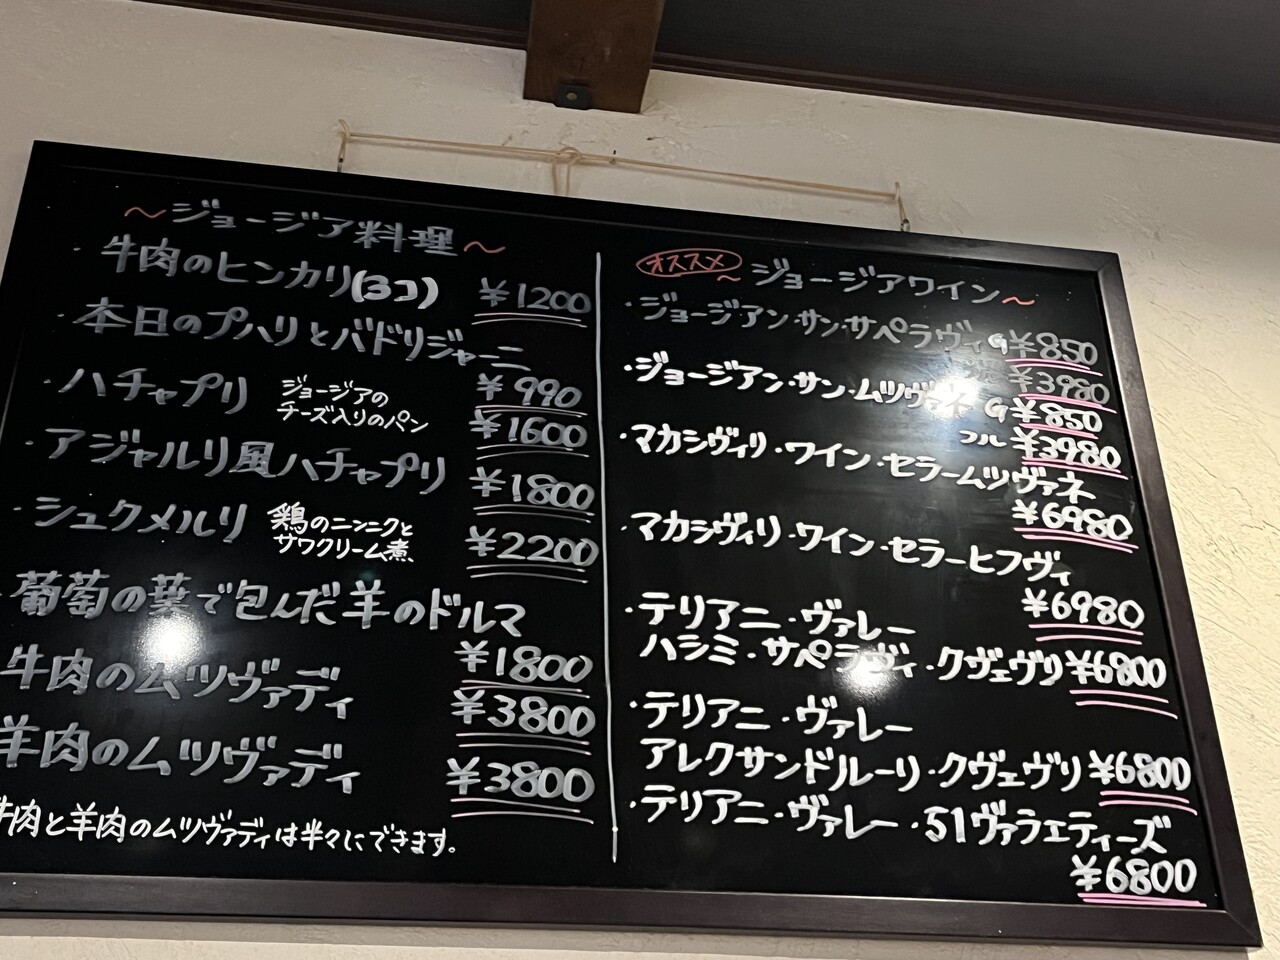 ～ジョージア料理～
・牛肉のヒンカリ(3コ) ¥1200
・本日のプハリとバドリジャーニ
¥990
・ハチャプリ ジョージアの
チーズ入りのパン ¥1600
・アジャルリ風ハチャプリ ¥1800
・シュクメルリ 鶏のニンニクと
サワクリーム煮 ¥2200
・葡萄の葉で包んだ羊のドルマ
¥1800
牛肉のムツヴァディ ¥3800
羊肉のムツヴァディ ¥3800
牛肉と羊肉のムツヴァディは半々にできます。
オススメ
～ジョージアワイン～
・ジョージアン・サン・サペラヴィ G¥850
¥3980
・ジョージアン・サン・ムツヴァネ G¥850
フル ¥3980
・マカシヴィリ・ワイン・セラームツヴァネ
¥6980
・マカシヴィリ・ワイン・セラーヒフヴィ
¥6980
・テリアニ・ヴァレー
ハシミ・サペラヴィ・クヴェヴリ ¥6800
・テリアニ・ヴァレー
アレクサンドルーリ・クヴェヴリ ¥6800
・テリアニ・ヴァレー・51ヴァラエティーズ
¥6800